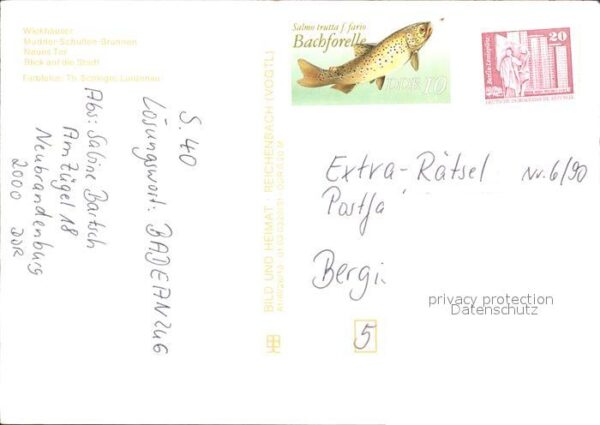 Wiekhäuser
Mudder-Schulten-Brunnen
Neues Tor
Blick auf die Stadt
S. 40
Lösungswort: BADEANZUG
Abs: Sabine Bartsch
Am Zügel 18
Neubrandenburg
2000 DDR
BILD UND HEIMAT · REICHENBACH (VOGTL)
Salmo trutta f. fario
Bachforelle
DDR 10
20
Extra-Rätsel Nr. 6/90
Postfa
Bergi
5
privacy protection
Datenschutz